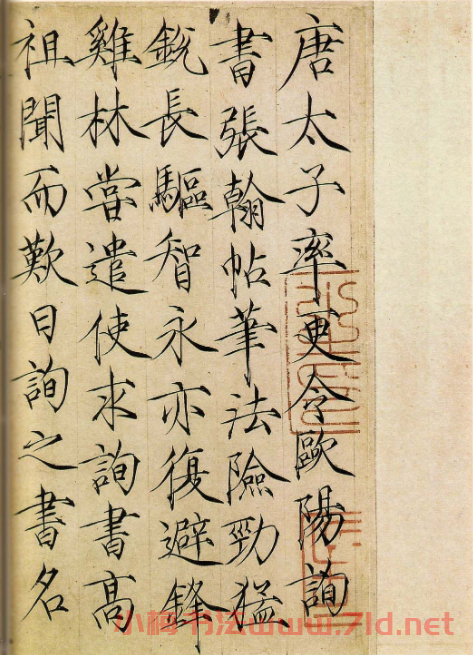 唐太子率更令歐陽詢
書張翰帖筆法險勁猛
鋭長驅智永亦復避鋒
雞林嘗遣使求詢書高
祖聞而歎曰詢之書名
小柯书法www.7ld.net